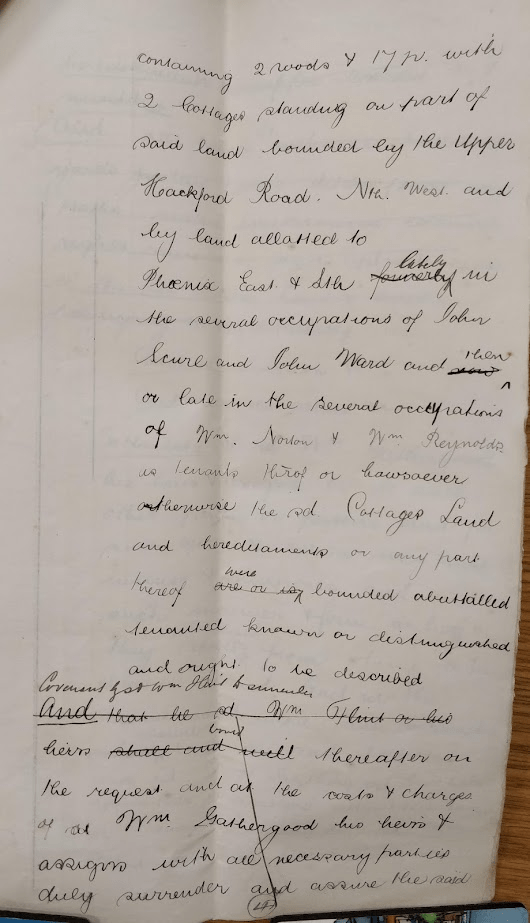 containing 2 roods & 17 p. with
2 Cottages standing on part of
said land bounded by the Upper
Hackford Road. Nth. West. and
by land allotted to
Phœnix East. & Sth formerly lately in
the several occupations of John
Scure and John Ward and now then
or late in the several occupations
of Wm. Norton & Wm Reynolds
as tenants throf or howsoever
otherwise the sd Cottages Land
and hereditaments or any part
thereof are or is were bounded abuttalled
tenanted known or distinguished
and ought to be described
Covenant by sd Wm Flint to surrender
And that he sd Wm Flint or his
heirs shall and will would thereafter on
the request and at the costs & charges
of sd Wm. Gathergood his heirs &
assigns with all necessary parties
duly surrender and assure the said